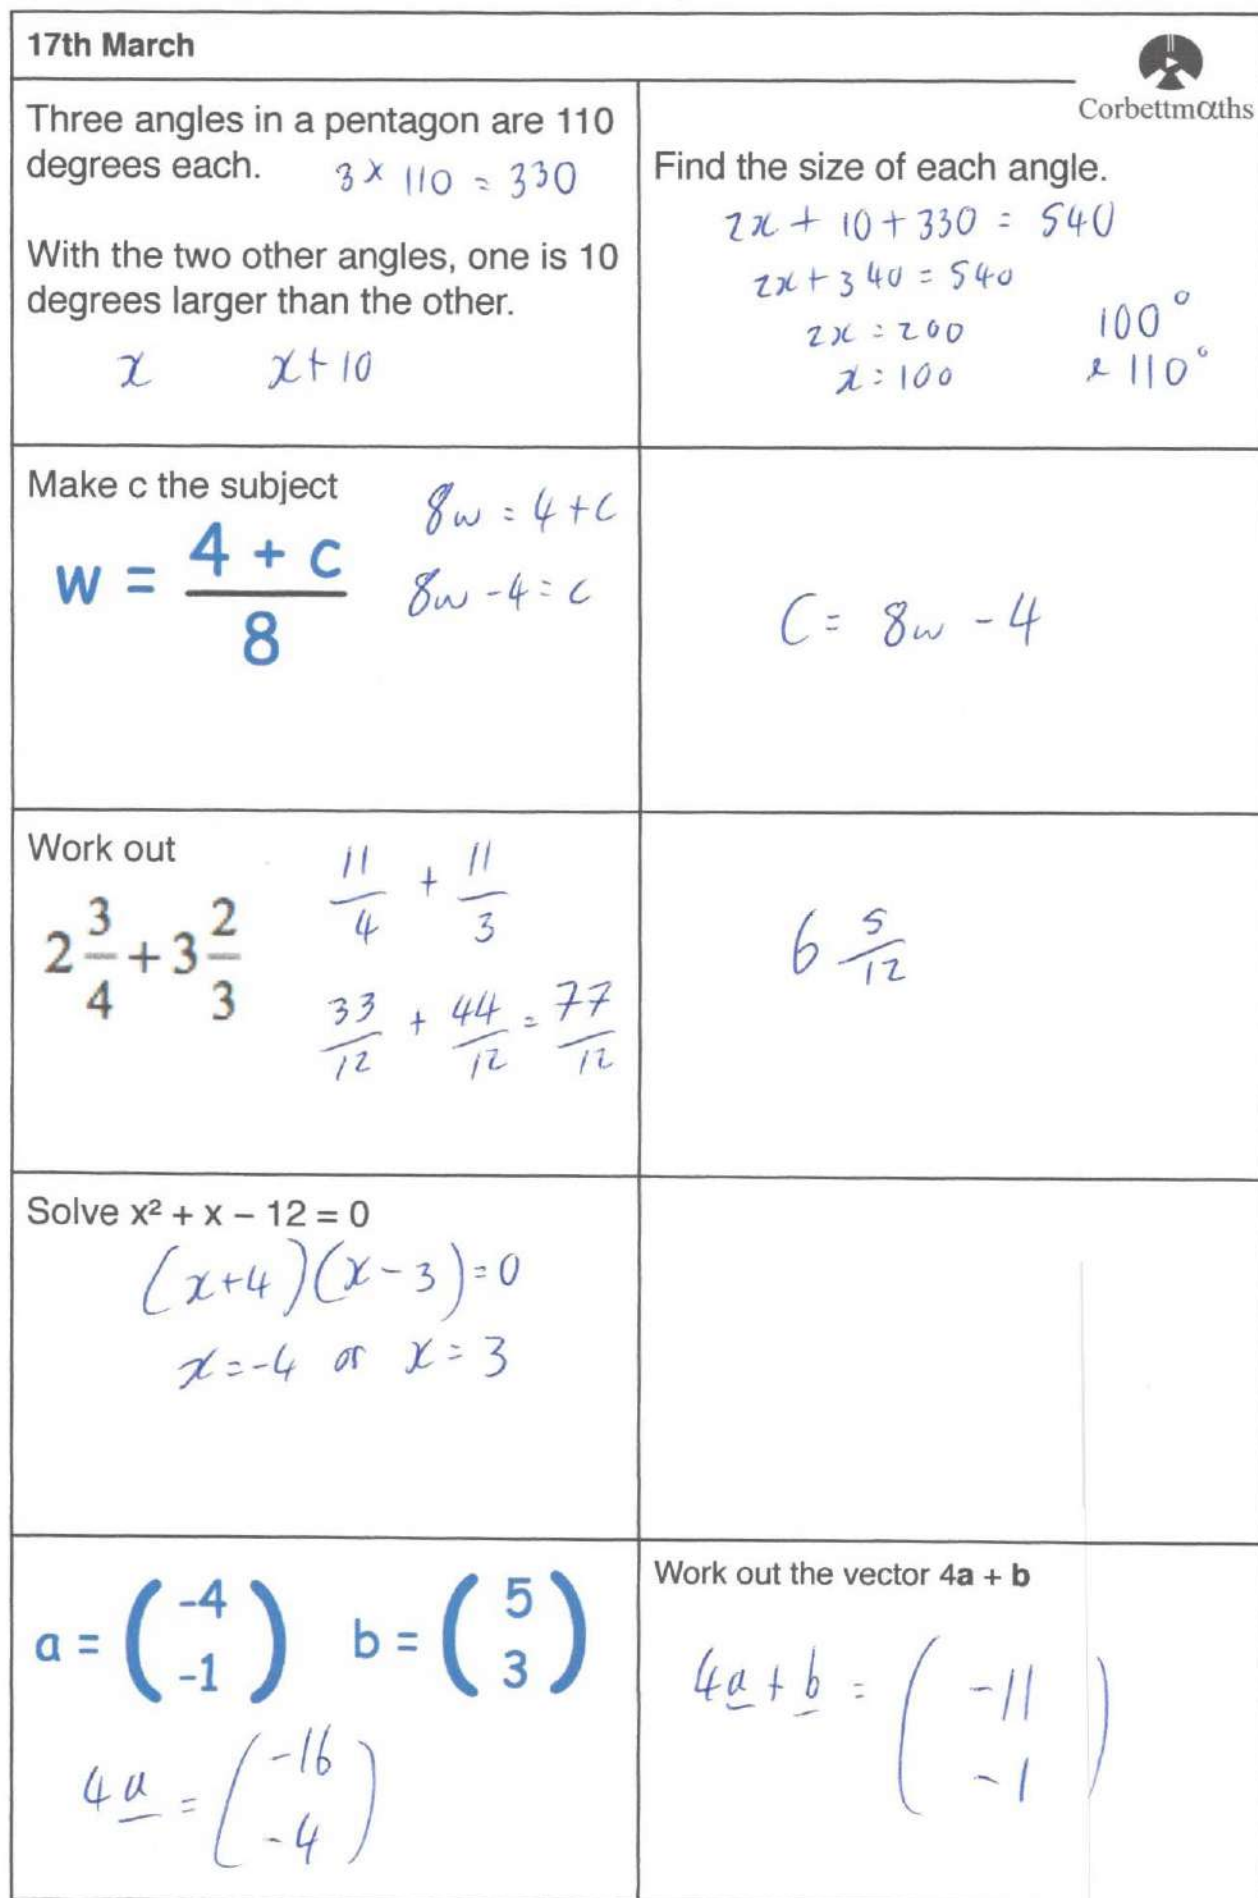 17th March
Corbettmαths
Three angles in a pentagon are 110
degrees each. 3 × 110 = 330
With the two other angles, one is 10
degrees larger than the other.
x x + 10
Find the size of each angle.
2x + 10 + 330 = 540
2x + 340 = 540
2x = 200
x = 100
100°
& 110°
Make c the subject
w = (4 + c)/8
8w = 4 + c
8w - 4 = c
C = 8w - 4
Work out
2 3/4 + 3 2/3
11/4 + 11/3
33/12 + 44/12 = 77/12
6 5/12
Solve x² + x – 12 = 0
(x+4)(x-3)=0
x = -4 or x = 3
a = (-4 -1) b = (5 3)
4a = (-16 -4)
Work out the vector 4a + b
4a + b = (-11 -1)